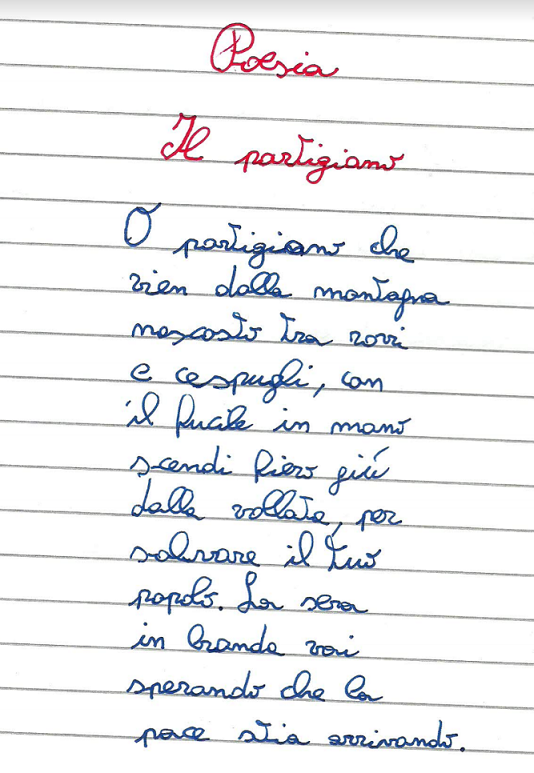 Poesia
Il partigiano
O partigiano che
vien dalla montagna
nascosto tra rovi
e cespugli, con
il fucile in mano
scendi fiero giù
dalla vallata, per
salvare il tuo
popolo. La sera
in branda vai
sperando che la
pace stia arrivando.